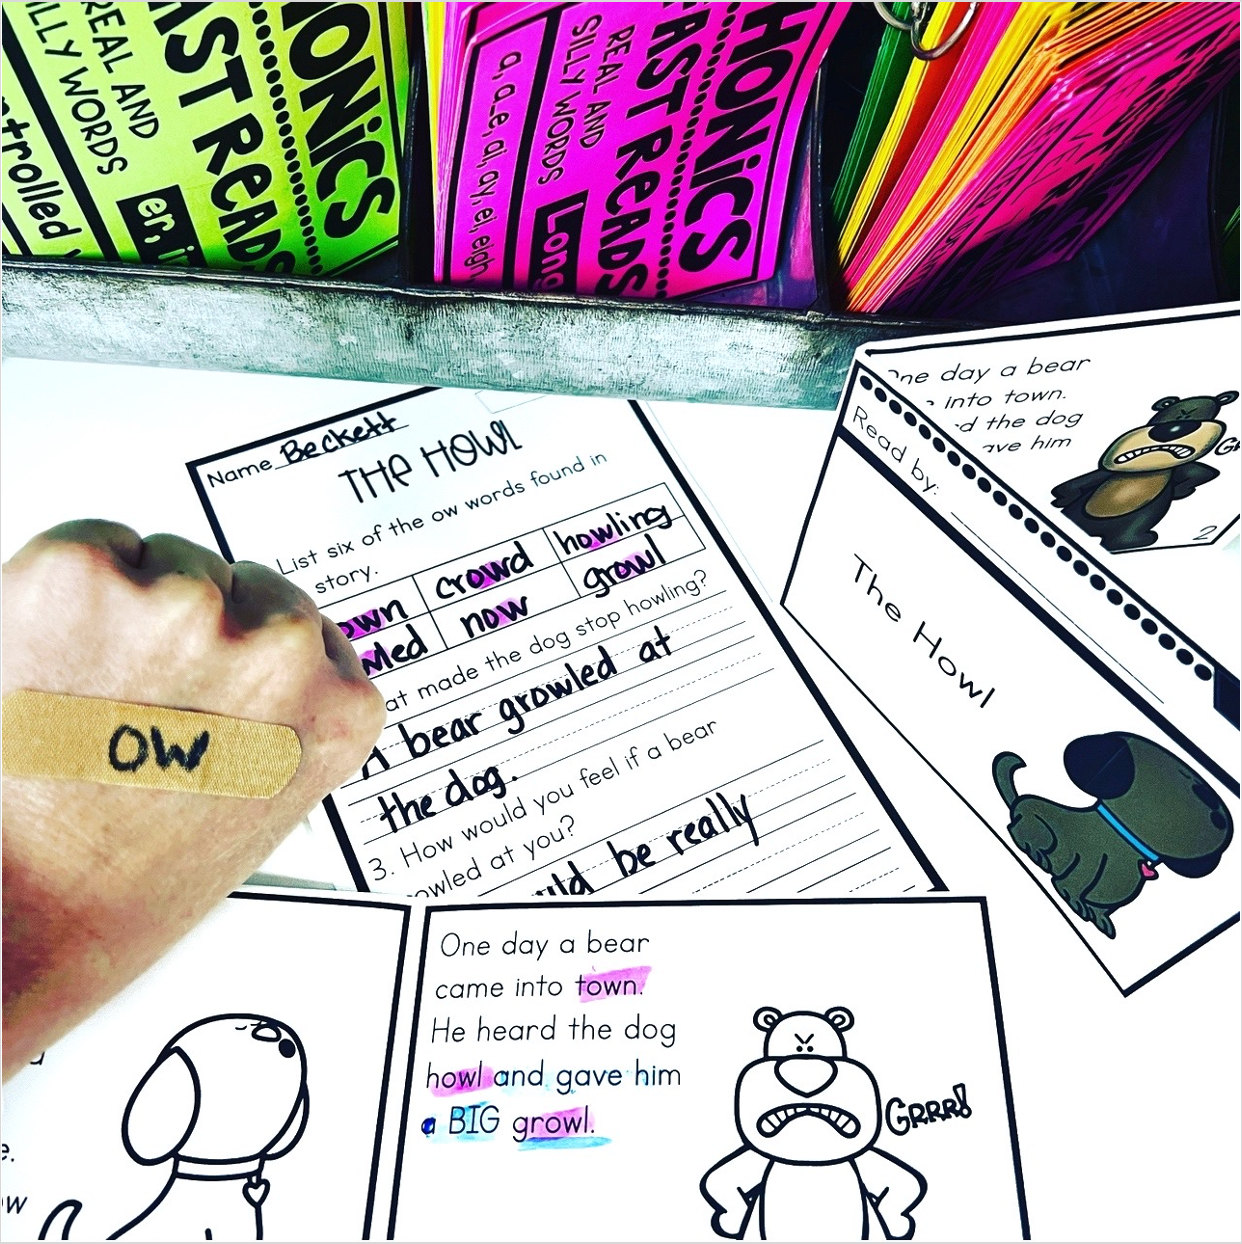 REAL AND
SILLY WORDS
FAST READS
PHONICS
REAL AND
SILLY WORDS
FAST READS
PHONICS
a, a_e, ai, ay, ei, eigh
Long
Name Beckett
THE HOWL
List six of the ow words found in
story.
crowd
howling
now
growl
made the dog stop howling?
A bear growled at
the dog.
3. How would you feel if a bear
at you?
be really
ow
One day a bear
into town.
the dog
him
2
Read by:
The Howl
One day a bear
came into town.
He heard the dog
howl and gave him
a BIG growl.
GRRR!